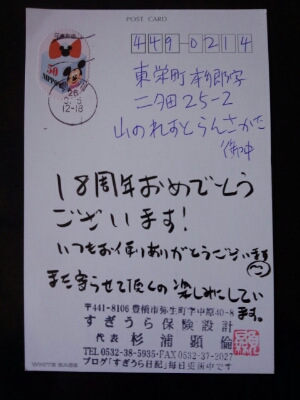 POST CARD
449-0214
50
NIPPON
12-18
東栄町本郷字
二タ田25-2
山のれすとらんさかた
御中
18周年おめでとう
ございます!
いつもお便りありがとうございます
また寄らせて頂くの楽しみにしてい
ます。
〒441-8106 豊橋市弥生町字中原40-8
すぎうら保険設計
代表 杉浦顕倫
TEL 0532-38-5935・FAX 0532-37-2027
ブログ「すぎうら日記」毎日更新中です